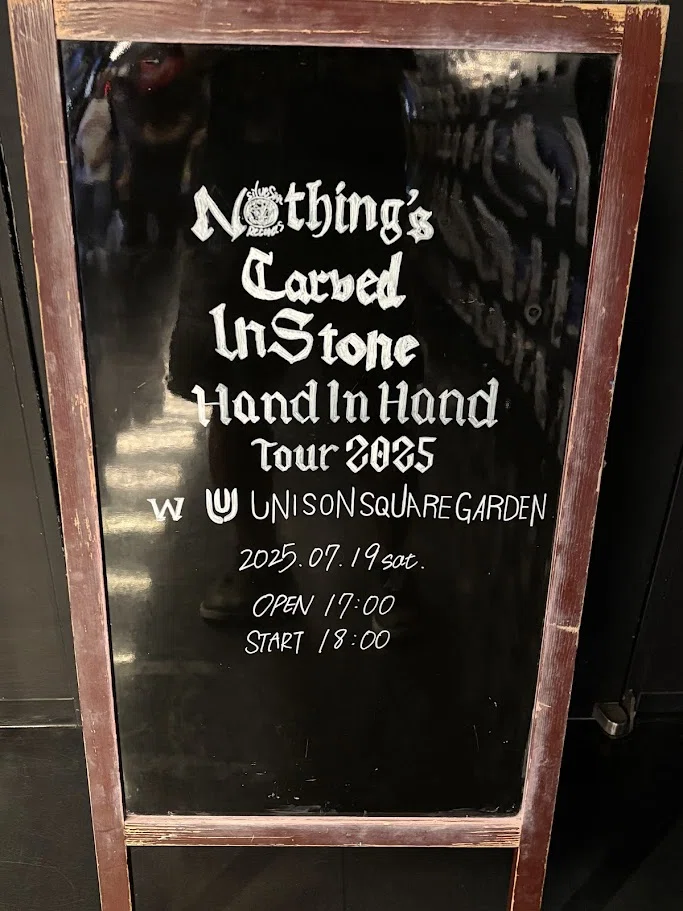 Nothing's
Carved
In Stone
Hand In Hand
Tour 2025
W UNISON SQUARE GARDEN
2025.07.19 sat.
OPEN 17:00
START 18:00